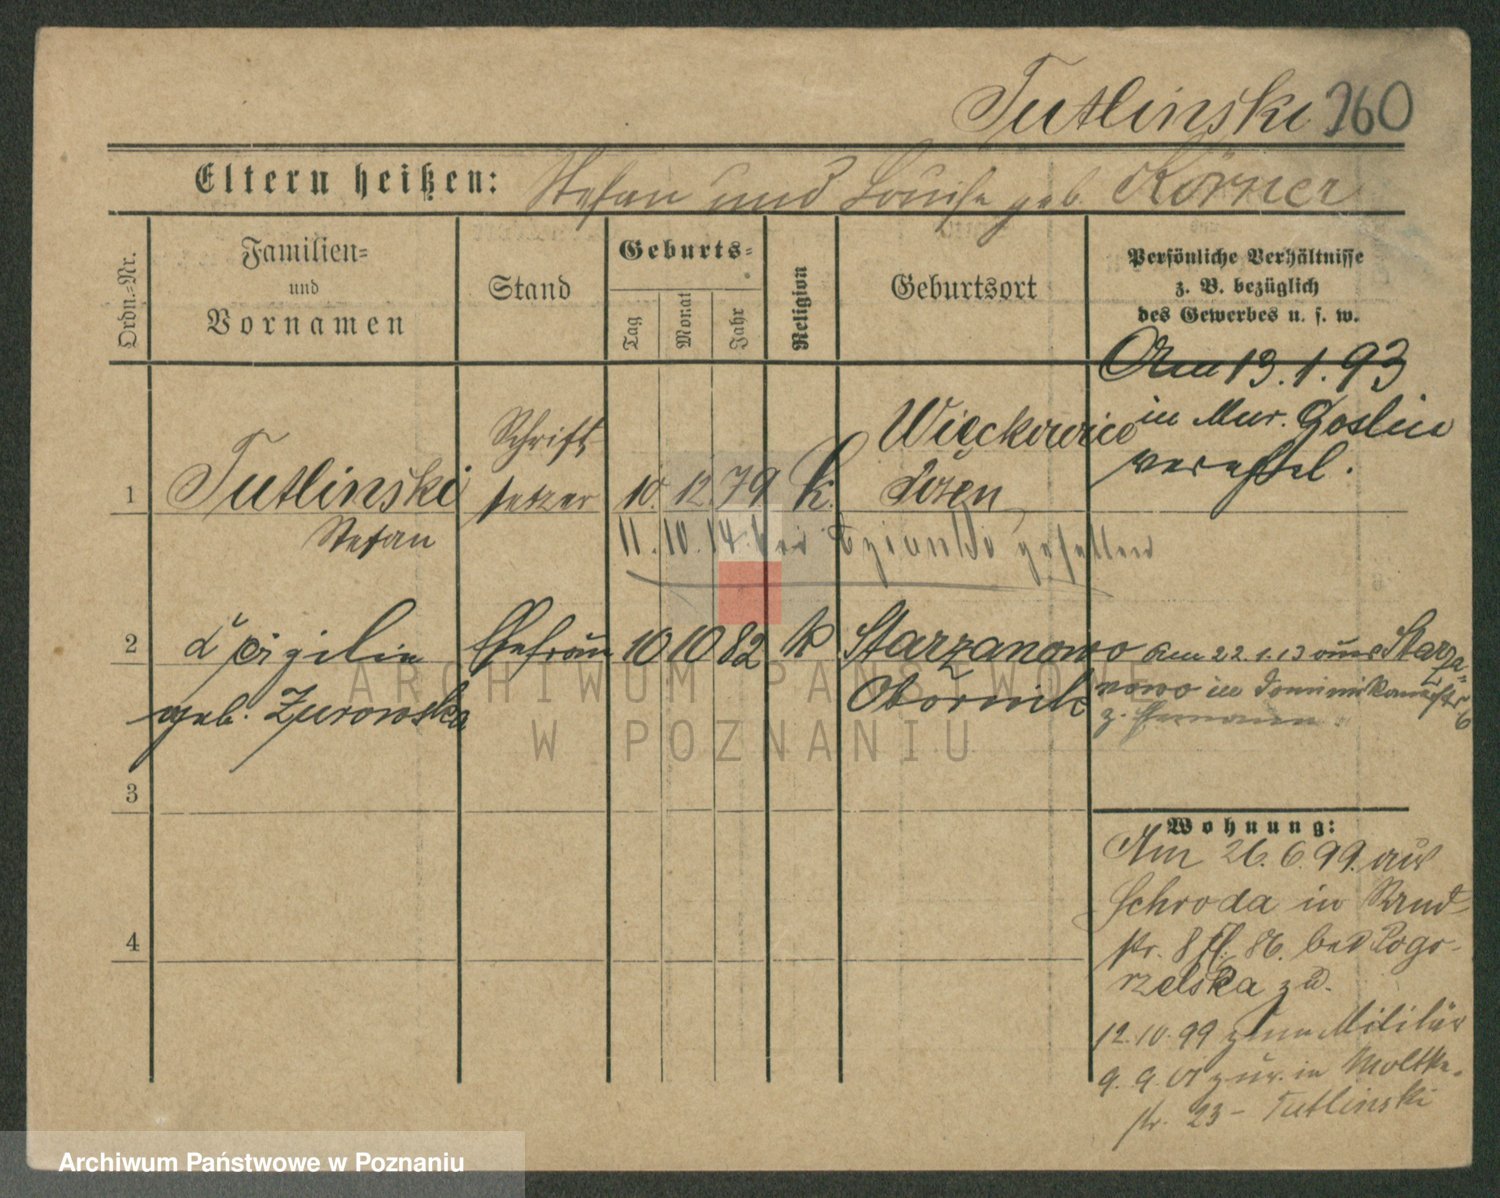 Tutlinski 360
Eltern heißen: Stefan und Louise geb. Körner
Ordn.-Nr.
Familien-
und
Vornamen
Stand
Geburts-
Tag
Monat
Jahr
Religion
Geburtsort
Persönliche Verhältnisse
z. B. bezüglich
des Gewerbes u. s. w.
Am 13.1.93
in Mur. Goslin
verehel.
1 Tutlinski Schrift
setzer 10. 12 79 k. Wieckowice
Posen
Stefan
11. 10. 14. bei gefallen
2 Ehefrau 10 10 82 k Starzanowo
geb. Zurowska
Obornik
Am 22.1.13 aus Starza-
nowo in Dominikanerstr
6
z.
3
4
Wohnung:
Am 26.6.99. aus
Schroda in
str. 8 86. bei Pogo-
rzelska zu.
12.10.99 zum Militär
9.9.01 zur. in Moltke-
str. 23 - Tutlinski
ARCHIWUM PAŃSTWOWE
W POZNANIU
Archiwum Państwowe w Poznaniu